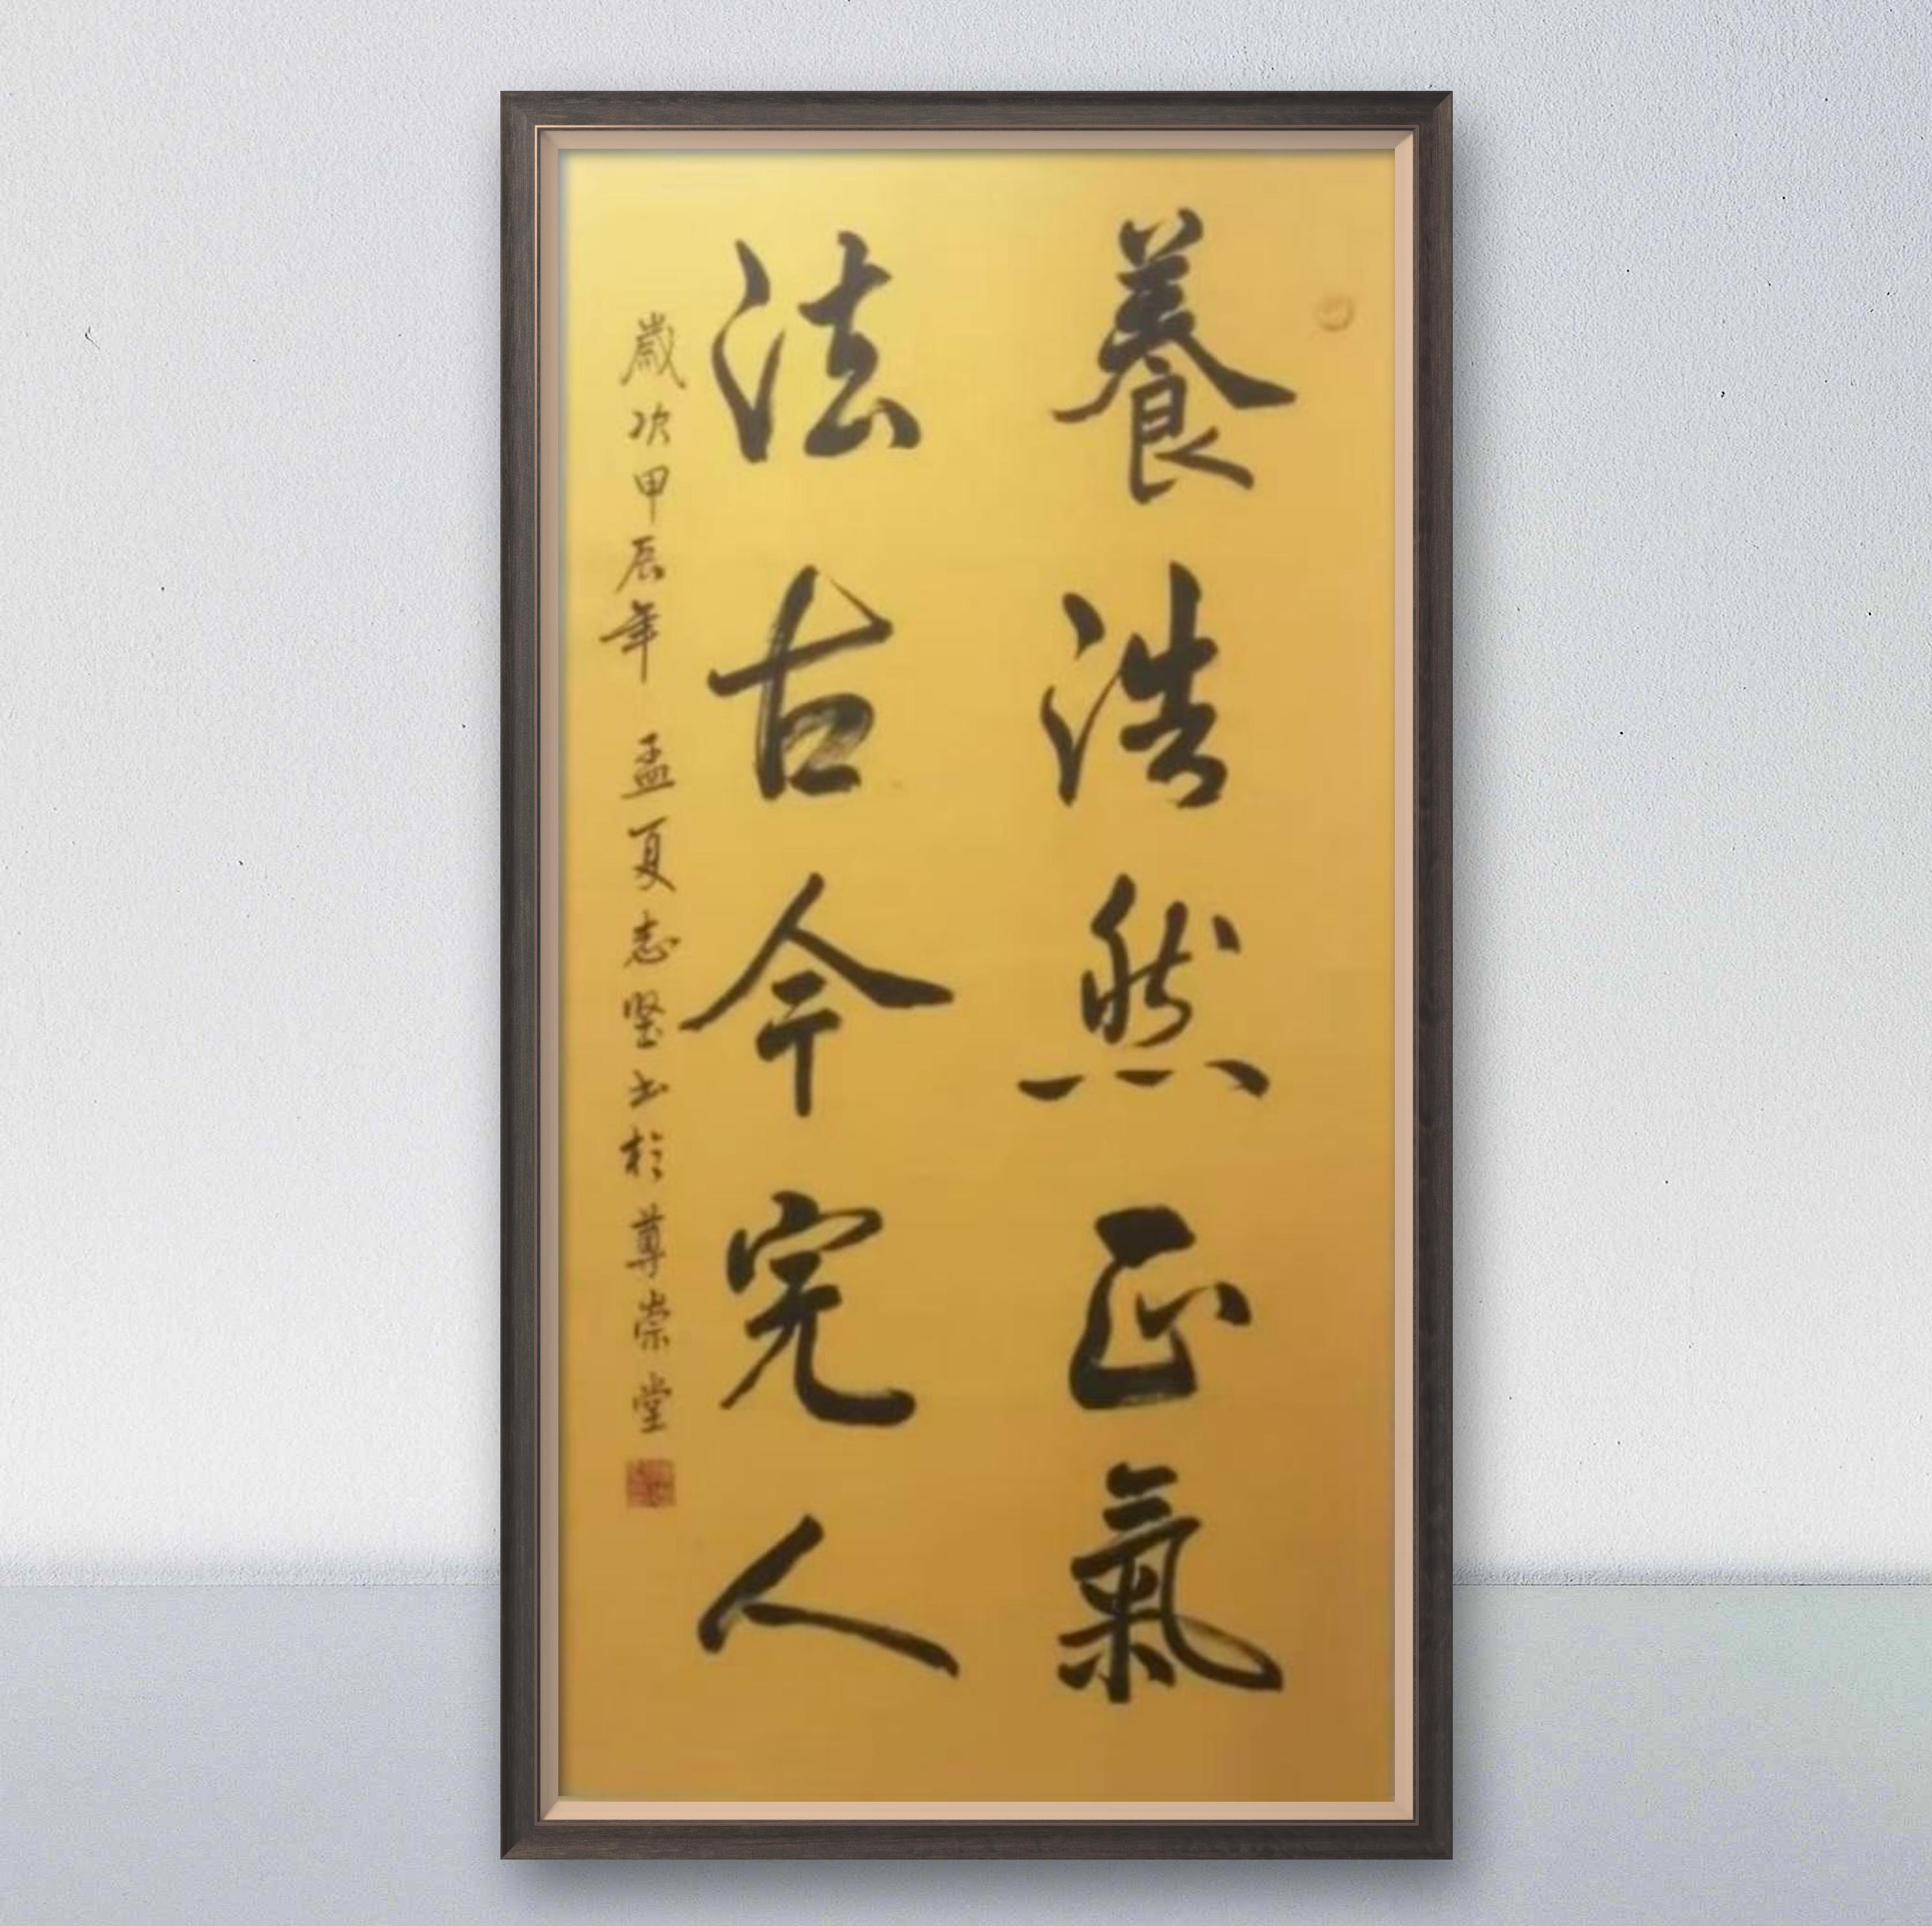 養浩然正氣
法古今完人
歲次甲辰年 孟夏志堅书於尊崇堂